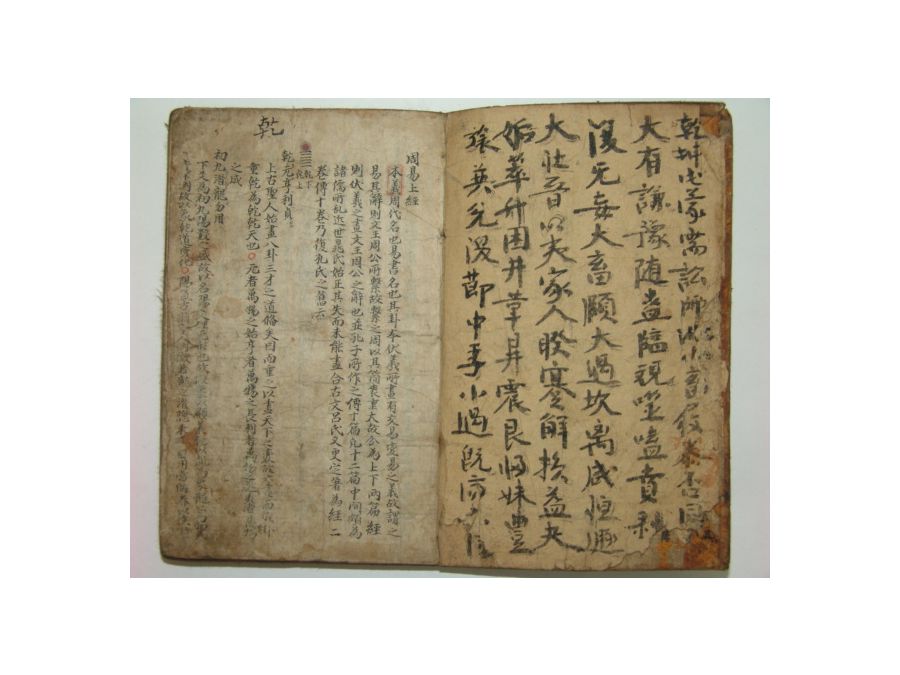 乾坤屯蒙需訟師比小畜履泰否同
大有謙豫隨蠱臨觀噬嗑賁剝
復无妄大畜頤大過坎离咸恒遯
大壯晋明夷家人睽蹇解損益夬
姤萃升困井革鼎震艮歸妹豊
旅巽兌渙節中孚小過旣濟
乾
周易上經
本義周代名也易書名也其卦本伏羲所畫有交易變易之義故謂之
易其辭則文王周公所繫故繫之周以其簡袠重大故分為上下兩篇經
則伏羲之畫文王周公之辭也並孔子所作之傳十篇凡十二篇中間頗為
諸儒所乱近世晁氏始正其失而未能盡合古文呂氏又更定著為經二
卷傳十卷乃復孔氏之舊云
乾下
乾上
乾元亨利貞
上古聖人始畫八卦三才之道俻矣因而重之以盡天下之
重乾為乾乾天也元者萬物之始亨者萬物之長利者萬物之
之成
初九潛龍勿用
下爻為初九陽數之盛故以名陽爻